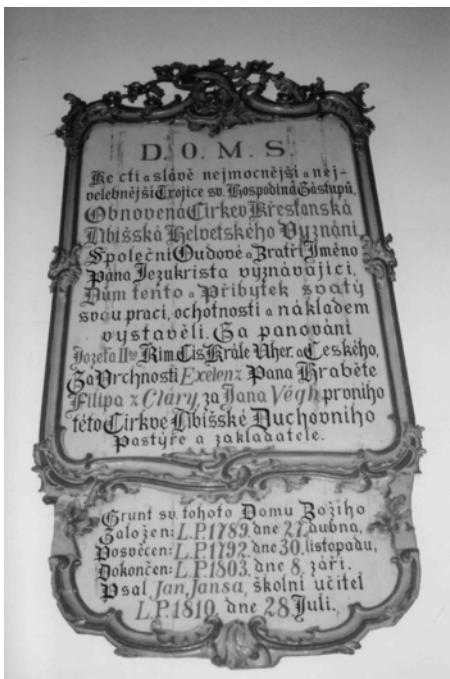 D. O. M. S.
Ke cti a slávě nejmocnější a nej-
velebnější Trojice sv. Hospodina Zástupů,
Obnovená Církev Křesťanská
Libišská Helvetského Vyznání
Společní Oudové a Bratří Jméno
Pána Jezukrista vyznávající,
Dům tento a Příbytek svatý
svou prací, ochotností a nákladem
vystavěli. Za panování
Jozefa IIho Řím. Cís. Krále Uher. a Českého,
Za Vrchnosti Exelenz Pana Hraběte
Filipa z Cláry, za Jana Végh prvního
této Církve Libišské Duchovního
Pastýře a zakladatele.
Grunt sv. tohoto Domu Božího
Založen: L.P.1789. dne 27. dubna,
Posvěcen: L.P.1792. dne 30. listopadu,
Dokončen: L.P.1803. dne 8. září.
Psal Jan Jansa, školní učitel
L.P.1810. dne 28 Juli.